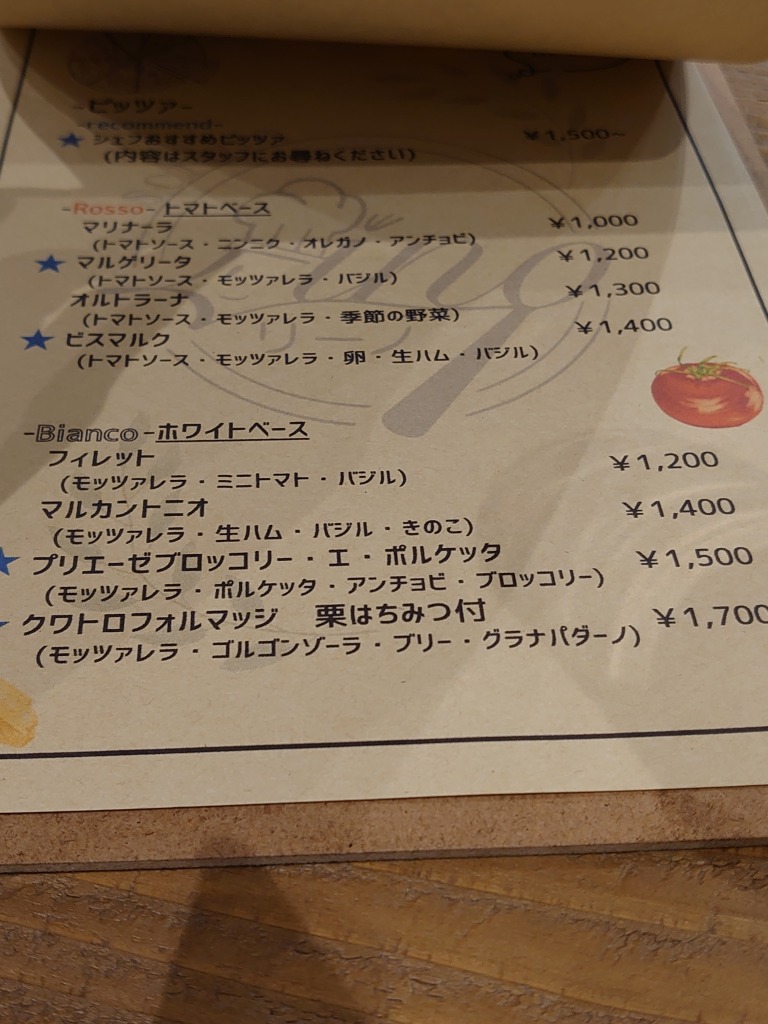 -ピッツァ-
-recommend-
★ シェフおすすめピッツァ ¥1,500~
(内容はスタッフにお尋ねください)
-Rosso- トマトベース
マリナーラ ¥1,000
(トマトソース・ニンニク・オレガノ・アンチョビ)
★ マルゲリータ ¥1,200
(トマトソース・モッツァレラ・バジル)
オルトラーナ ¥1,300
(トマトソース・モッツァレラ・季節の野菜)
★ ビスマルク ¥1,400
(トマトソース・モッツァレラ・卵・生ハム・バジル)
-Bianco-ホワイトベース
フィレット ¥1,200
(モッツァレラ・ミニトマト・バジル)
マルカントニオ ¥1,400
(モッツァレラ・生ハム・バジル・きのこ)
★ プリエーゼブロッコリー・エ・ポルケッタ ¥1,500
(モッツァレラ・ポルケッタ・アンチョビ・ブロッコリー)
★ クワトロフォルマッジ 栗はちみつ付 ¥1,700
(モッツァレラ・ゴルゴンゾーラ・ブリー・グラナパダーノ)